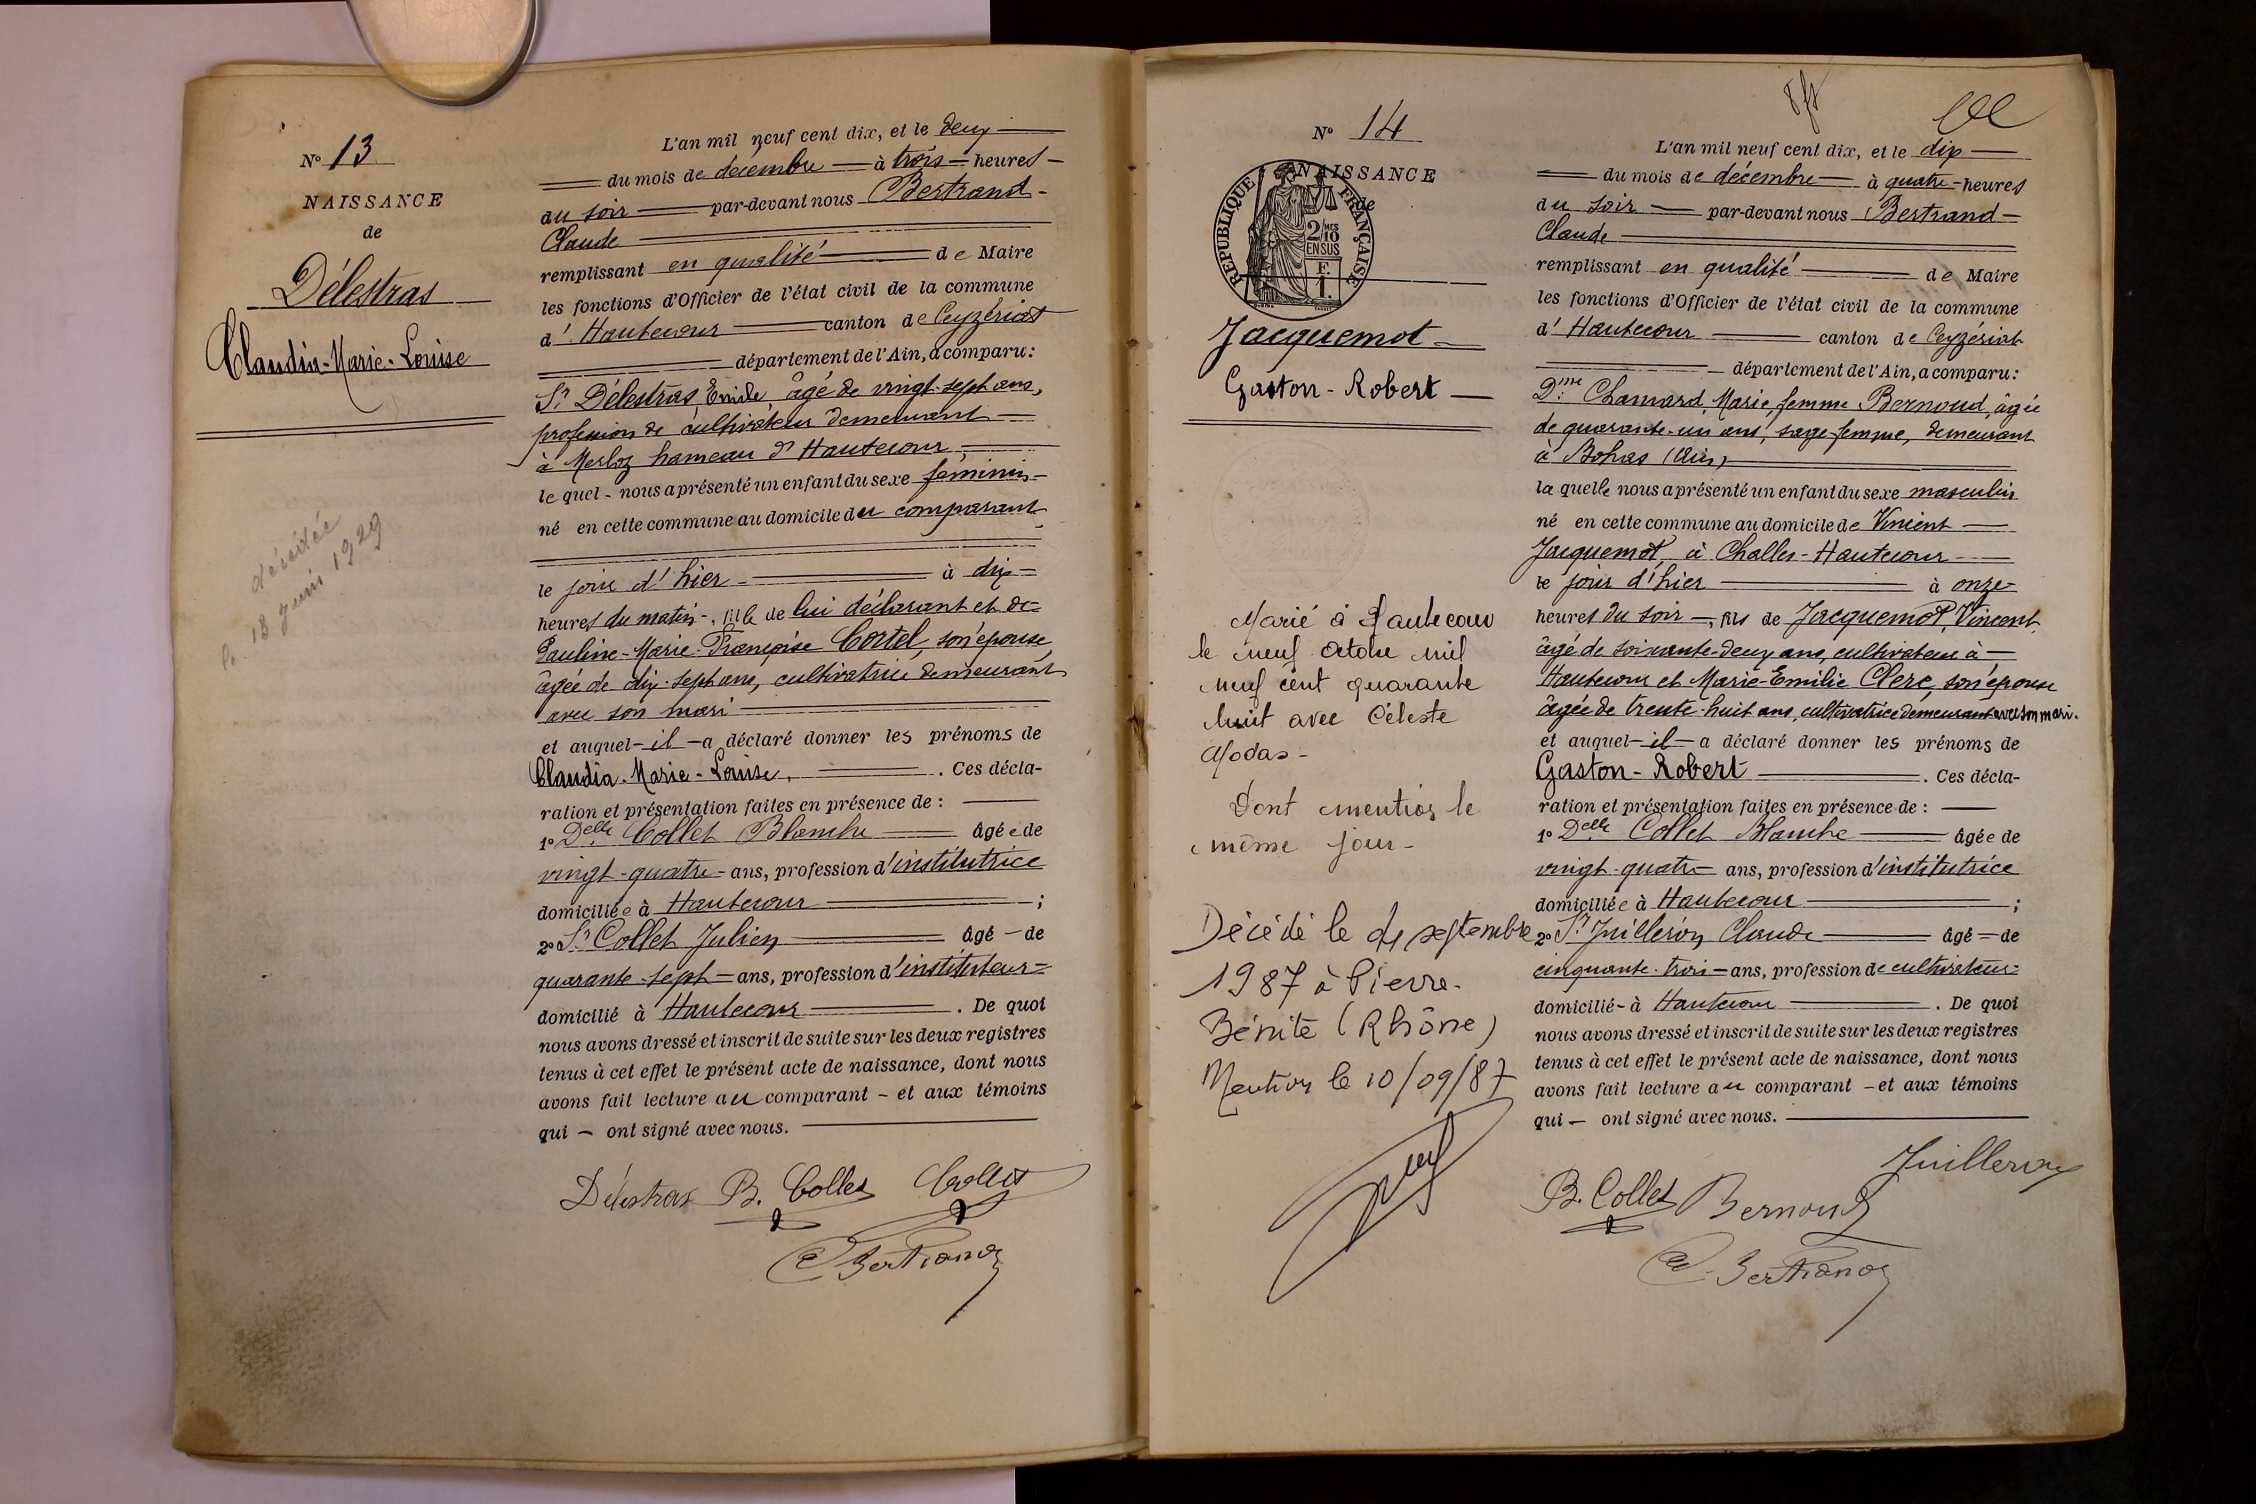 N° 13
NAISSANCE
de
Délestras
Claudia-Marie-Louise
décédée
le 13 juin 1929
L'an mil neuf cent dix, et le deux
du mois de décembre à trois heures
du soir par-devant nous Bertrand
Claude
remplissant en qualité de Maire
les fonctions d'Officier de l'état civil de la commune
d'Hautecour canton de Ceyzériat
département de l'Ain, a comparu:
Sr Délestras Emile, âgé de vingt-sept ans,
profession de cultivateur demeurant
à Merloz hameau d'Hautecour
lequel nous a présenté un enfant du sexe féminin
né en cette commune au domicile du comparant
le jour d'hier à dix
heures du matin, fille de lui déclarant et de
Pauline-Marie-Françoise Cortel, son épouse
âgée de dix-sept ans, cultivatrice demeurant
avec son mari
et auquel il a déclaré donner les prénoms de
Claudia-Marie-Louise. Ces décla-
ration et présentation faites en présence de :
1° Delle Collet Blanche âgée de
vingt-quatre ans, profession d'institutrice
domiciliée à Hautecour ;
2° Sr Collet Julien âgé de
quarante-sept ans, profession d'instituteur
domicilié à Hautecour. De quoi
nous avons dressé et inscrit de suite sur les deux registres
tenus à cet effet le présent acte de naissance, dont nous
avons fait lecture au comparant et aux témoins
qui ont signé avec nous.
Délestras B. Collet Collet
C Bertrand
N° 14
NAISSANCE
de
RÉPUBLIQUE FRANÇAISE
2/10 MES
EN SUS
F.
1.
Jacquemot
Gaston-Robert
Marié à Hautecour
le neuf octobre mil
neuf cent quarante
huit avec Céleste
Modas
Dont mention le
même jour
Décédé le 4 septembre
1987 à Pierre-
Bénite (Rhône)
Mention le 10/09/87
L'an mil neuf cent dix, et le dix
du mois de décembre à quatre heures
du soir par-devant nous Bertrand
Claude
remplissant en qualité de Maire
les fonctions d'Officier de l'état civil de la commune
d'Hautecour canton de Ceyzériat
département de l'Ain, a comparu:
Dme Chanard, Marie, femme Bernoud, âgée
de quarante-un ans, sage-femme, demeurant
à Bohas (Ain)
laquelle nous a présenté un enfant du sexe masculin
né en cette commune au domicile de Vincent
Jacquemot, à Challes-Hautecour
le jour d'hier à onze
heures du soir, fils de Jacquemot, Vincent,
âgé de soixante-deux ans, cultivateur à
Hautecour et Marie-Emilie Clerc, son épouse
âgée de trente-huit ans, cultivatrice demeurant avec son mari.
et auquel il a déclaré donner les prénoms de
Gaston-Robert. Ces décla-
ration et présentation faites en présence de :
1° Delle Collet Blanche âgée de
vingt-quatre ans, profession d'institutrice
domiciliée à Hautecour ;
2° Sr Juilleron Claude âgé de
cinquante-trois ans, profession de cultivateur
domicilié à Hautecour. De quoi
nous avons dressé et inscrit de suite sur les deux registres
tenus à cet effet le présent acte de naissance, dont nous
avons fait lecture au comparant et aux témoins
qui ont signé avec nous.
Juilleron
B. Collet Bernoud
C. Bertrand